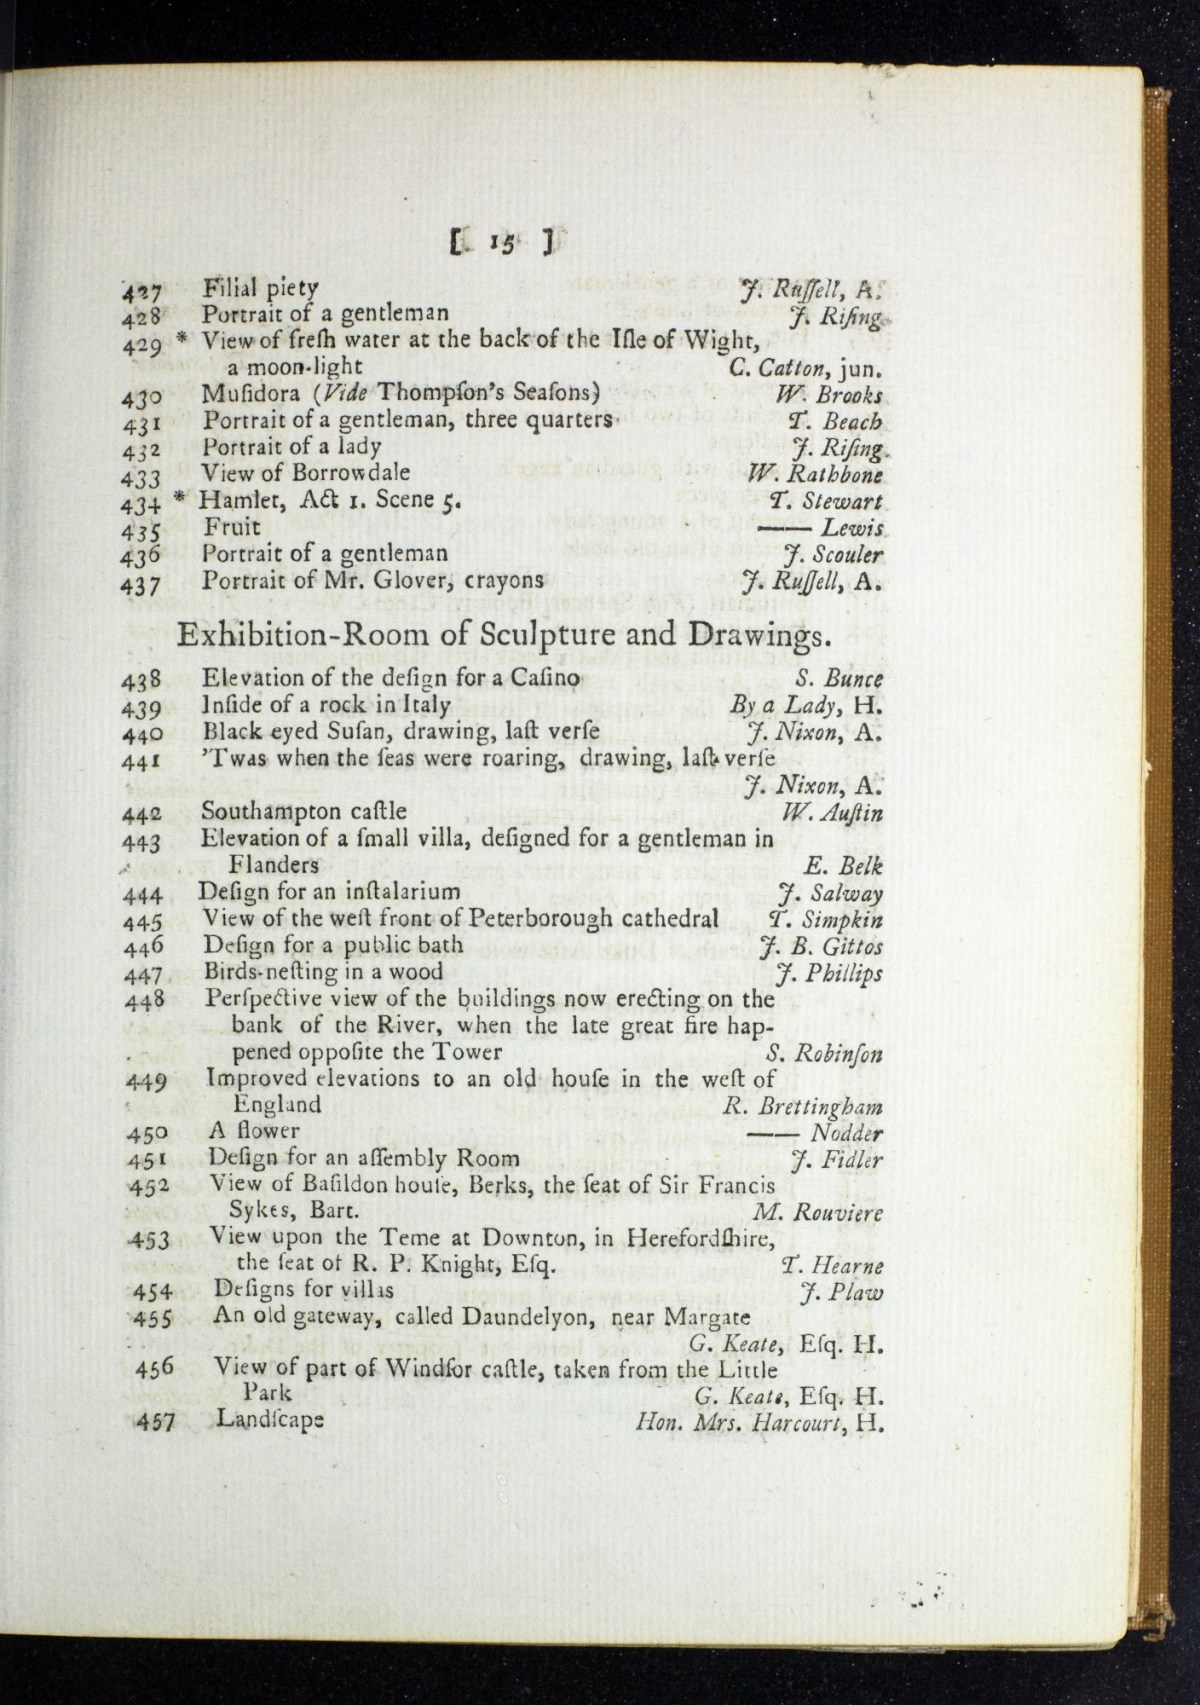 [ 15 ]
427 Filial piety J. Ruſſell, A.
428 Portrait of a gentleman J. Riſing
429 * View of freſh water at the back of the Iſle of Wight,
a moon-light C. Catton, jun.
430 Muſidora (Vide Thompſon's Seaſons) W. Brooks
431 Portrait of a gentleman, three quarters T. Beach
432 Portrait of a lady J. Riſing.
433 View of Borrowdale W. Rathbone
434 * Hamlet, Act 1. Scene 5. T. Stewart
435 Fruit —— Lewis
436 Portrait of a gentleman J. Scouler
437 Portrait of Mr. Glover, crayons J. Ruſſell, A.
Exhibition-Room of Sculpture and Drawings.
438 Elevation of the deſign for a Caſino S. Bunce
439 Inſide of a rock in Italy By a Lady, H.
440 Black eyed Suſan, drawing, laſt verſe J. Nixon, A.
441 'Twas when the ſeas were roaring, drawing, laſt verſe
J. Nixon, A.
442 Southampton caſtle W. Auſtin
443 Elevation of a ſmall villa, deſigned for a gentleman in
Flanders E. Belk
444 Deſign for an inſtalarium J. Salway
445 View of the weſt front of Peterborough cathedral T. Simpkin
446 Deſign for a public bath J. B. Gittos
447 Birds-neſting in a wood J. Phillips
448 Perſpective view of the buildings now erecting on the
bank of the River, when the late great fire hap-
pened oppoſite the Tower S. Robinſon
449 Improved elevations to an old houſe in the weſt of
England R. Brettingham
450 A flower —— Nodder
451 Deſign for an aſſembly Room J. Fidler
452 View of Baſildon houſe, Berks, the ſeat of Sir Francis
Sykes, Bart. M. Rouviere
453 View upon the Teme at Downton, in Herefordſhire,
the ſeat of R. P. Knight, Eſq. T. Hearne
454 Deſigns for villas J. Plaw
455 An old gateway, called Daundelyon, near Margate
G. Keate, Eſq. H.
456 View of part of Windſor caſtle, taken from the Little
Park G. Keate, Eſq. H.
457 Landſcape Hon. Mrs. Harcourt, H.